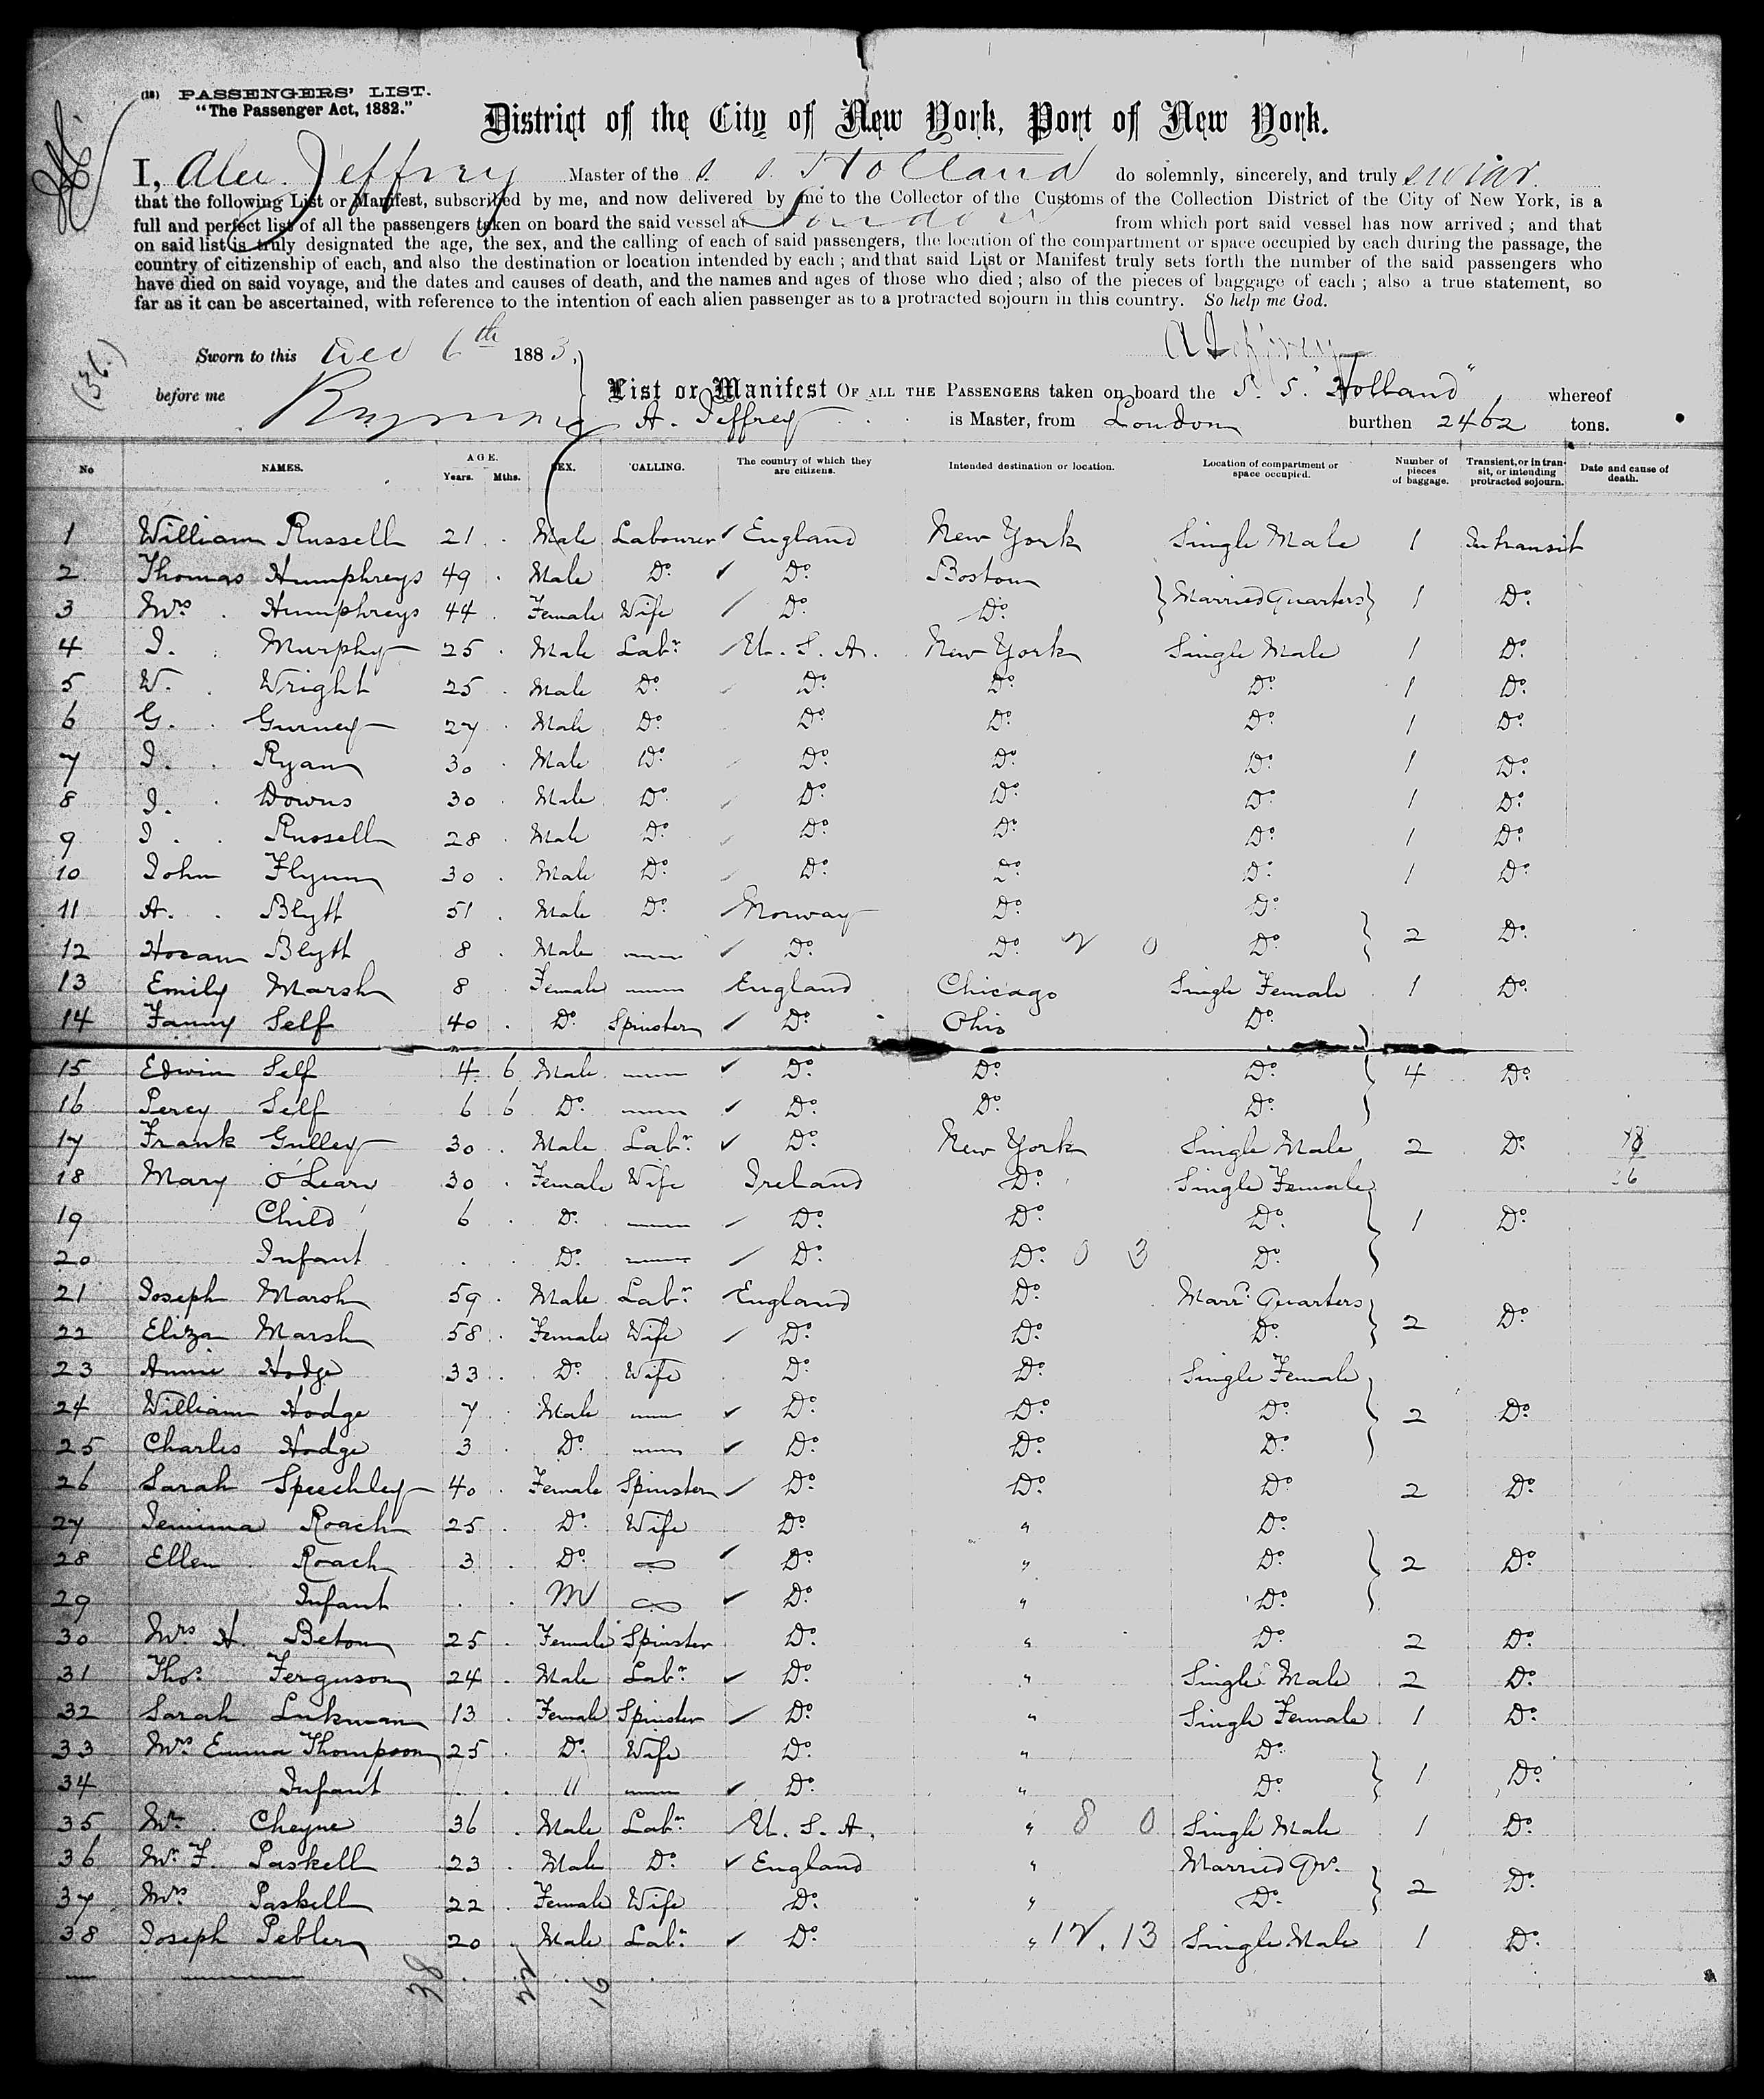 (18) PASSENGERS' LIST.
"The Passenger Act, 1882."
District of the City of New York, Port of New York.
I, Alex. Jeffrey Master of the S. S. Holland do solemnly, sincerely, and truly swear.
that the following List or Manifest, subscribed by me, and now delivered by me to the Collector of the Customs of the Collection District of the City of New York, is a
full and perfect list of all the passengers taken on board the said vessel at London from which port said vessel has now arrived ; and that
on said list is truly designated the age, the sex, and the calling of each of said passengers, the location of the compartment or space occupied by each during the passage, the
country of citizenship of each, and also the destination or location intended by each ; and that said List or Manifest truly sets forth the number of the said passengers who
have died on said voyage, and the dates and causes of death, and the names and ages of those who died ; also of the pieces of baggage of each ; also a true statement, so
far as it can be ascertained, with reference to the intention of each alien passenger as to a protracted sojourn in this country. So help me God.
(36.)
Sworn to this Dec 6th 1883, A Jeffrey
before me
List or Manifest OF ALL THE PASSENGERS taken on board the S. S. "Holland" whereof
A. Jeffrey is Master, from London burthen 2462 tons.
No NAMES. AGE. Years. Mths. SEX. CALLING. The country of which they are citizens. Intended destination or location. Location of compartment or space occupied. Number of pieces of baggage. Transient, or in transit, or intending protracted sojourn. Date and cause of death.
1 William Russell 21 Male Labourer England New York Single Male 1 In transit
2 Thomas Humphreys 49 Male Do. Do. Boston
3 Mrs. Humphreys 44 Female Wife Do. Do. Married Quarters 1 Do.
4 J. Murphy 25 Male Labr. U. S. A. New York Single Male 1 Do.
5 W. Wright 25 Male Do. Do. Do. Do. 1 Do.
6 G. Gurney 27 Male Do. Do. Do. Do. 1 Do.
7 J. Ryan 30 Male Do. Do. Do. Do. 1 Do.
8 J. Downs 30 Male Do. Do. Do. Do. 1 Do.
9 J. Russell 28 Male Do. Do. Do. Do. 1 Do.
10 John Flynn 30 Male Do. Do. Do. Do. 1 Do.
11 A. Blyth 51 Male Do. Norway Do. Do.
12 Blyth 8 Male — Do. Do. 2 0 Do. 2 Do.
13 Emily Marsh 8 Female — England Chicago Single Female 1 Do.
14 Fanny Self 40 Do. Spinster Do. Ohio Do.
15 Edwin Self 4 6 Male — Do. Do. Do. 4 Do.
16 Percy Self 6 6 Do. — Do. Do. Do.
17 Frank Gulley 30 Male Labr. Do. New York Single Male 2 Do.
18 Mary O'Leary 30 Female Wife Ireland Do. Single Female
19 Child 6 Do. — Do. Do. Do. 1 Do.
20 Infant Do. — Do. Do. 0 3 Do.
21 Joseph Marsh 59 Male Labr. England Do. Marrd. Quarters
22 Eliza Marsh 58 Female Wife Do. Do. Do. 2 Do.
23 Annie Hodge 33 Do. Wife Do. Do. Single Female
24 William Hodge 7 Male — Do. Do. Do. 2 Do.
25 Charles Hodge 3 Do. — Do. Do. Do.
26 Sarah Speechley 40 Female Spinster Do. Do. Do. 2 Do.
27 Jemima Roach 25 Do. Wife Do. " Do.
28 Ellen Roach 3 Do. Do. " Do. 2 Do.
29 Infant M Do. " Do.
30 Mrs. H. Beton 25 Female Spinster Do. " Do. 2 Do.
31 Thos. Ferguson 24 Male Labr. Do. " Single Male 2 Do.
32 Sarah Lukman 13 Female Spinster Do. " Single Female 1 Do.
33 Mrs. Emma Thompson 25 Do. Wife Do. " Do.
34 Infant " — Do. " Do. 1 Do.
35 Mr. Cheyne 36 Male Labr. U. S. A. " 8 0 Single Male 1 Do.
36 Mr. F. Paskell 23 Male Do. England " Married Qrs.
37 Mrs. Paskell 22 Female Wife Do. " Do. 2 Do.
38 Joseph Pebler 20 Male Labr. Do. " 12.13 Single Male 1 Do.
38 22 16